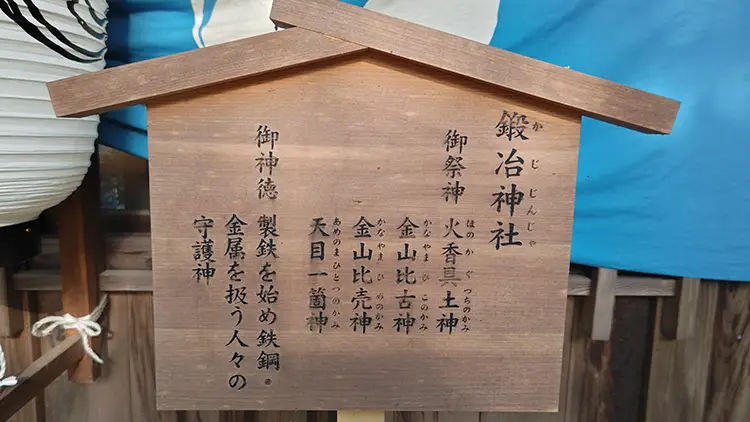 鍛冶神社
かじじんじゃ
御祭神 火香具土神
ほのかぐつちのかみ
金山比古神
かなやまひこのかみ
金山比売神
かなやまひめのかみ
天目一箇神
あめのまひとつのかみ
御神徳 製鉄を始め鉄鋼。
金属を扱う人々の
守護神